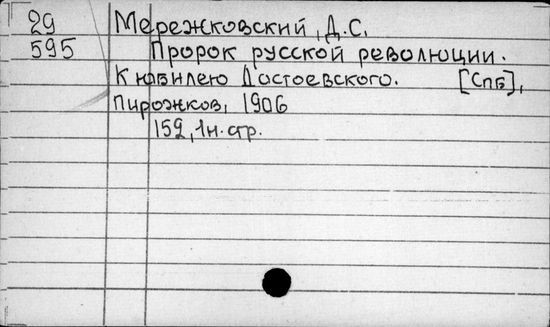 29 Мережковский, Д.С.
595 Пророк русской революции.
К юбилею Достоевского. [Спб],
Пирожков, 1906
152, 1н.стр.